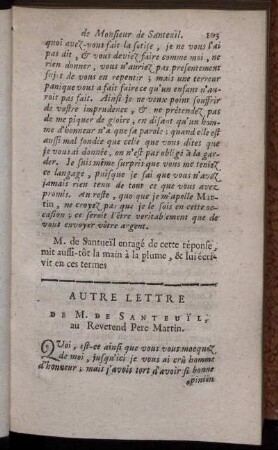 de Monsieur de Santeüil. 103
quoi avez-vous fait la sotise, je ne vous l'ai
pas dit, & vous deviez faire comme moi, ne
rien donner, vous n'auriez pas presentement
sujet de vous en repentir ; mais une terreur
panique vous a fait faire ce qu'un enfant n'au-
roit pas fait. Ainsi je ne veux point souffrir
de vostre imprudence ; & ne prétendez pas
de me piquer de gloire, en disant qu'un hom-
me d'honneur n'a que sa parole : quand elle est
aussi mal fondée que celle que vous dites que
je vous ai donnée, on n'est pas obligé à la gar-
der. Je suis même surpris que vous me teniez
ce langage, puisque je sai que vous n'avez
jamais rien tenu de tout ce que vous avez
promis. Au reste, quoi que je m'apelle Mar-
tin, ne croyez pas que je le sois en cette oc-
casion ; ce seroit l'être veritablement que de
vous envoyer vôtre argent.
M. de Santueil enragé de cette réponse,
mit aussi-tôt la main à la plume, & lui écri-
vit en ces termes
AUTRE LETTRE
DE M. DE SANTEUÏL,
au Reverend Pere Martin.
QUoi, est-ce ainsi que vous vous mocquez
de moi, jusqu'ici je vous ai crû homme
d'honneur ; mais j'avois tort d'avoir si bonne
opinion